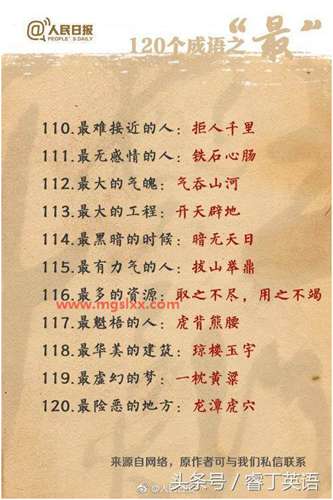 @人民日报
PEOPLE'S DAILY
120个成语之"最"
110.最难接近的人：拒人千里
111.最无感情的人：铁石心肠
112.最大的气魄：气吞山河
113.最大的工程：开天辟地
114.最黑暗的时候：暗无天日
115.最有力气的人：拔山举鼎
116.最多的资源：取之不尽，用之不竭
www.mgslxx.com
117.最魁梧的人：虎背熊腰
118.最华美的建筑：琼楼玉宇
119.最虚幻的梦：一枕黄粱
120.最险恶的地方：龙潭虎穴
来源自网络，原作者可与我们私信联系
头条号/睿丁英语